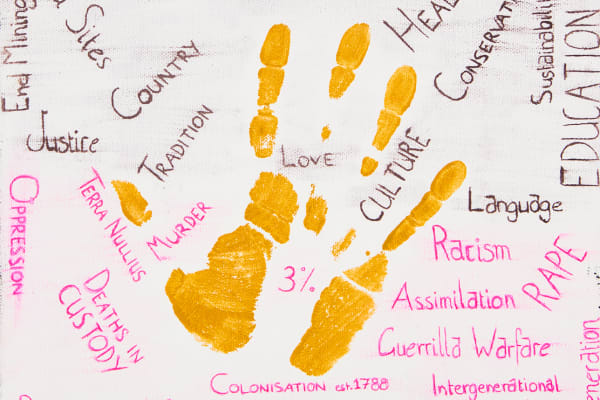 End Mining
Sites
COUNTRY
TRADITION
HEAL
CONSERVAT
Sustainabili
EDUCATION
Justice
LOVE
CULTURE
Language
OPPRESSION
TERRA NULLIUS
MURDER
DEATHS IN
CUSTODY
3%
Racism
RAPE
Assimilation
Guerrilla Warfare
COLONISATION est.1788
Intergenerational
eneration